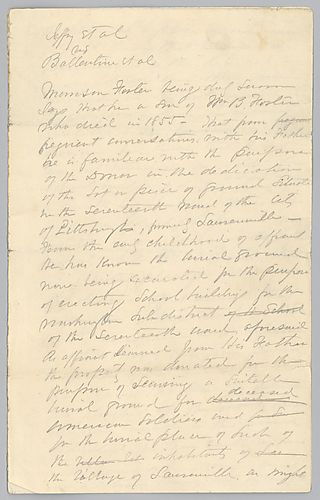 Jeffy et al
vs
Ballentine et al
Morrison Foster being duly sworn
says that he a son of Wm B. Foster
who died in 1855 - That from
frequent conversations with his Father
he is familiar with the purpose
of the Donor in the dedication
of the Lot or piece of ground situate
in the Seventeenth Ward of the City
of Pittsburgh, formerly Lawrenceville -
From the early childhood of affiant
he has known the burial ground
now being excavated for the purpose
of erecting School building for the
Washington Sub district of School
of the Seventeenth ward aforesaid
As affiant learned from his Father
the property was donated for the
purpose of securing a suitable
burial ground for deceased
American Soldiers and for
for the burial place of such of
the inhabitants of
the Village of Lawrenceville as might